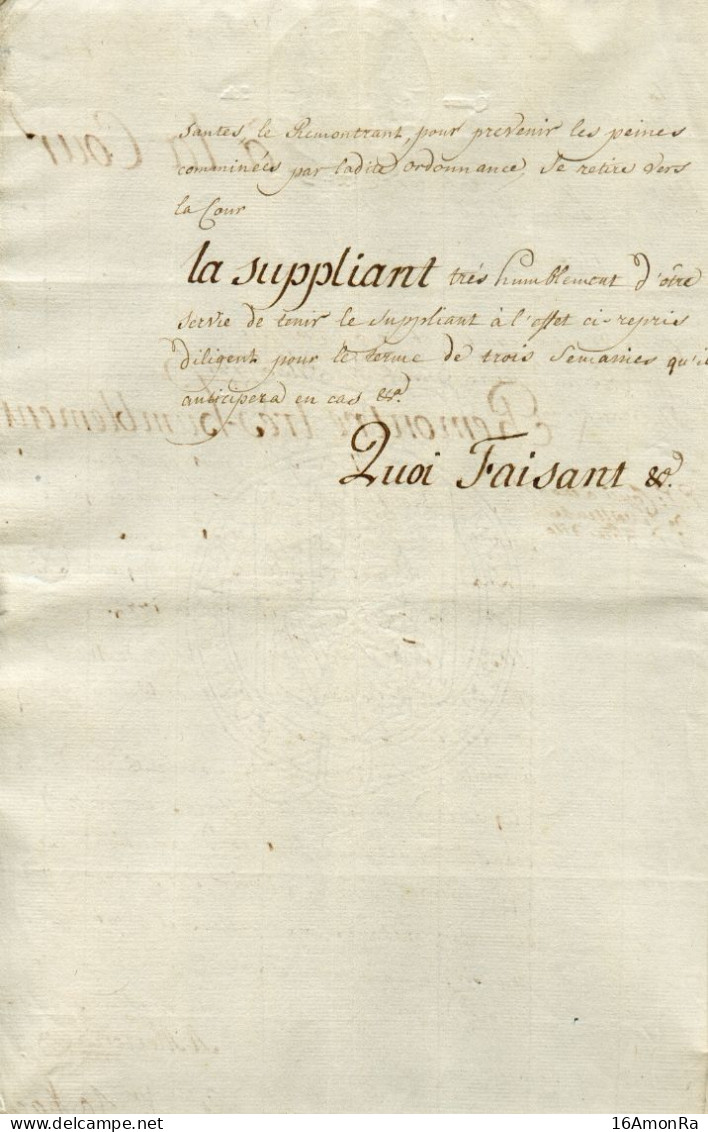 santes, le Remontrant, pour prevenir les peines
comminées par ladite ordonnance, se retire vers
la Cour
la suppliant trés humblement d'être
servie de tenir le suppliant à l'effet ci-repris
diligent pour le terme de trois semaines qu'il
anticipera en cas &a.
Quoi Faisant &a.
16AmonRa